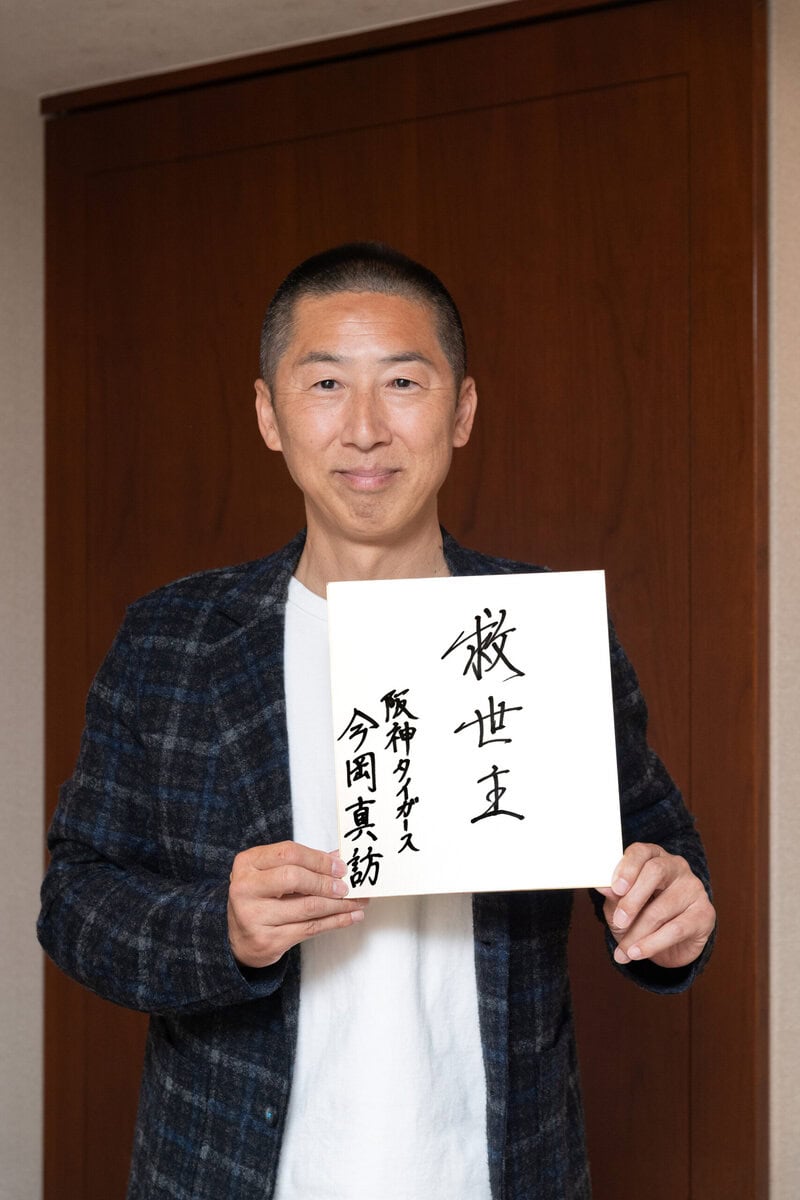 救世主
阪神タイガース
今岡真訪